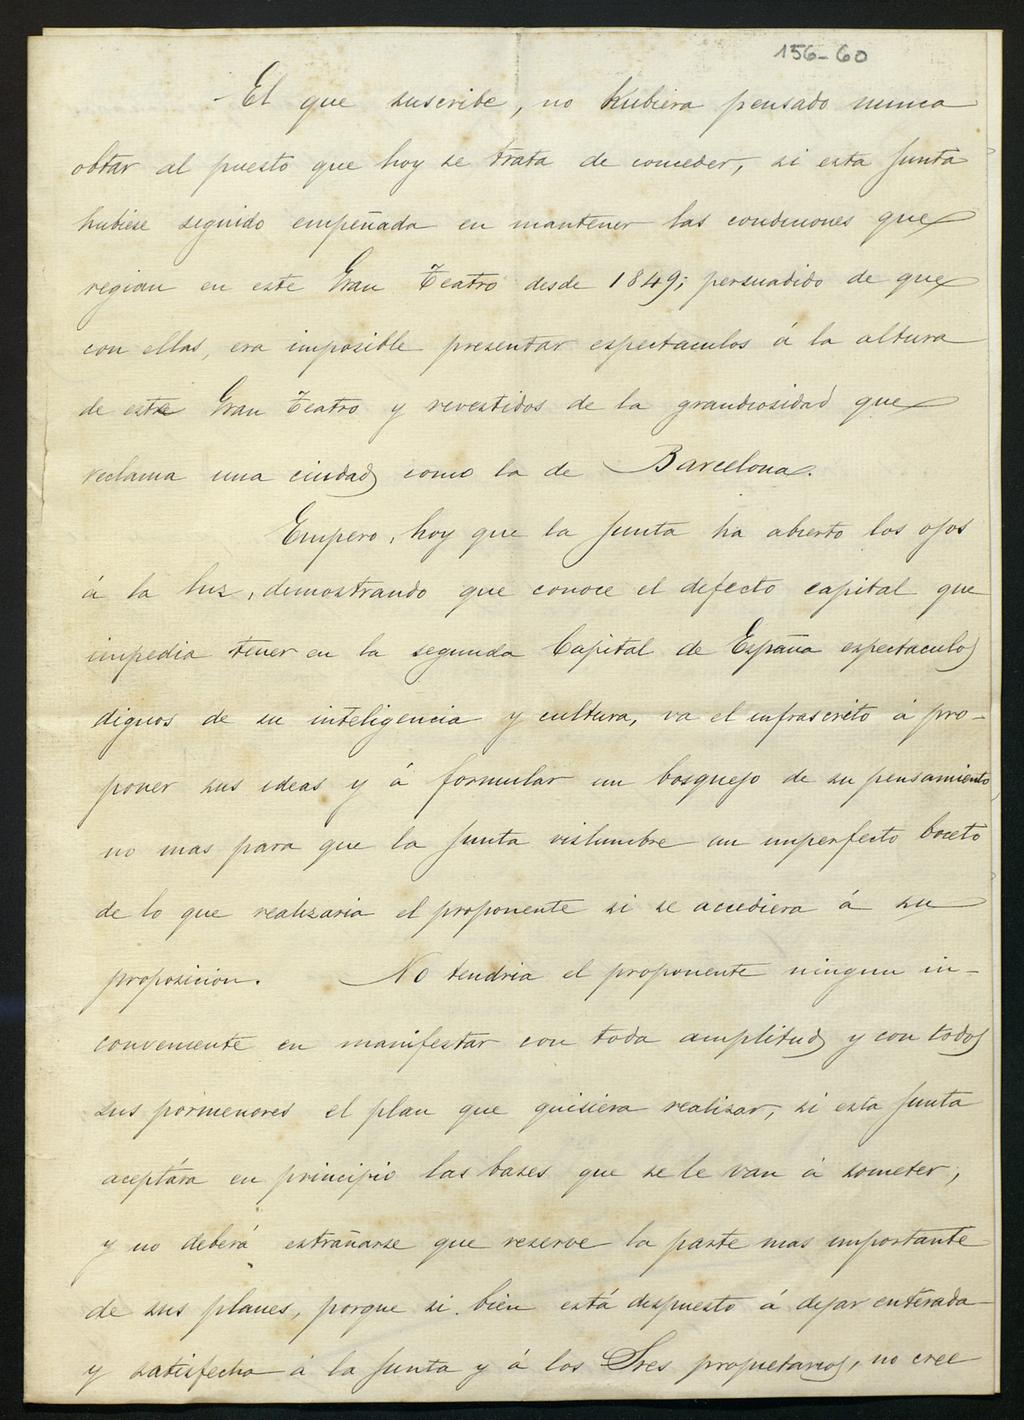 156-60
El que suscribe, no hubiera pensado nunca
obtar al puesto que hoy se trata de conceder, si esta Junta
hubiese seguido empeñada en mantener las condiciones que
regian en este Gran Teatro desde 1849; persuadido de que
con ellas, era imposible presentar espectaculos á la altura
de este Gran Teatro y revestidos de la grandiosidad que
reclama una ciudad como la de Barcelona.
Empero, hoy que la Junta ha abierto los ojos
á la luz, demostrando que conoce el defecto capital que
impedia tener en la segunda Capital de España espectaculos
dignos de su inteligencia y cultura, va el infrascrito á pro-
poner sus ideas y á formular un bosquejo de su pensamiento
no mas para que la Junta vislumbre un imperfecto boceto
de lo que realizaria el proponente si se accediera á su
proposicion. No tendria el proponente ningun in-
conveniente en manifestar con toda amplitud y con todos
sus pormenores el plan que quisiera realizar, si esta Junta
aceptára en principio las bases que se le van á someter,
y no deberá estrañarse que reserve la parte mas importante
de sus planes, porque si bien está dispuesto á dejar enterada
y satisfecha á la Junta y á los Sres propietarios, no cree